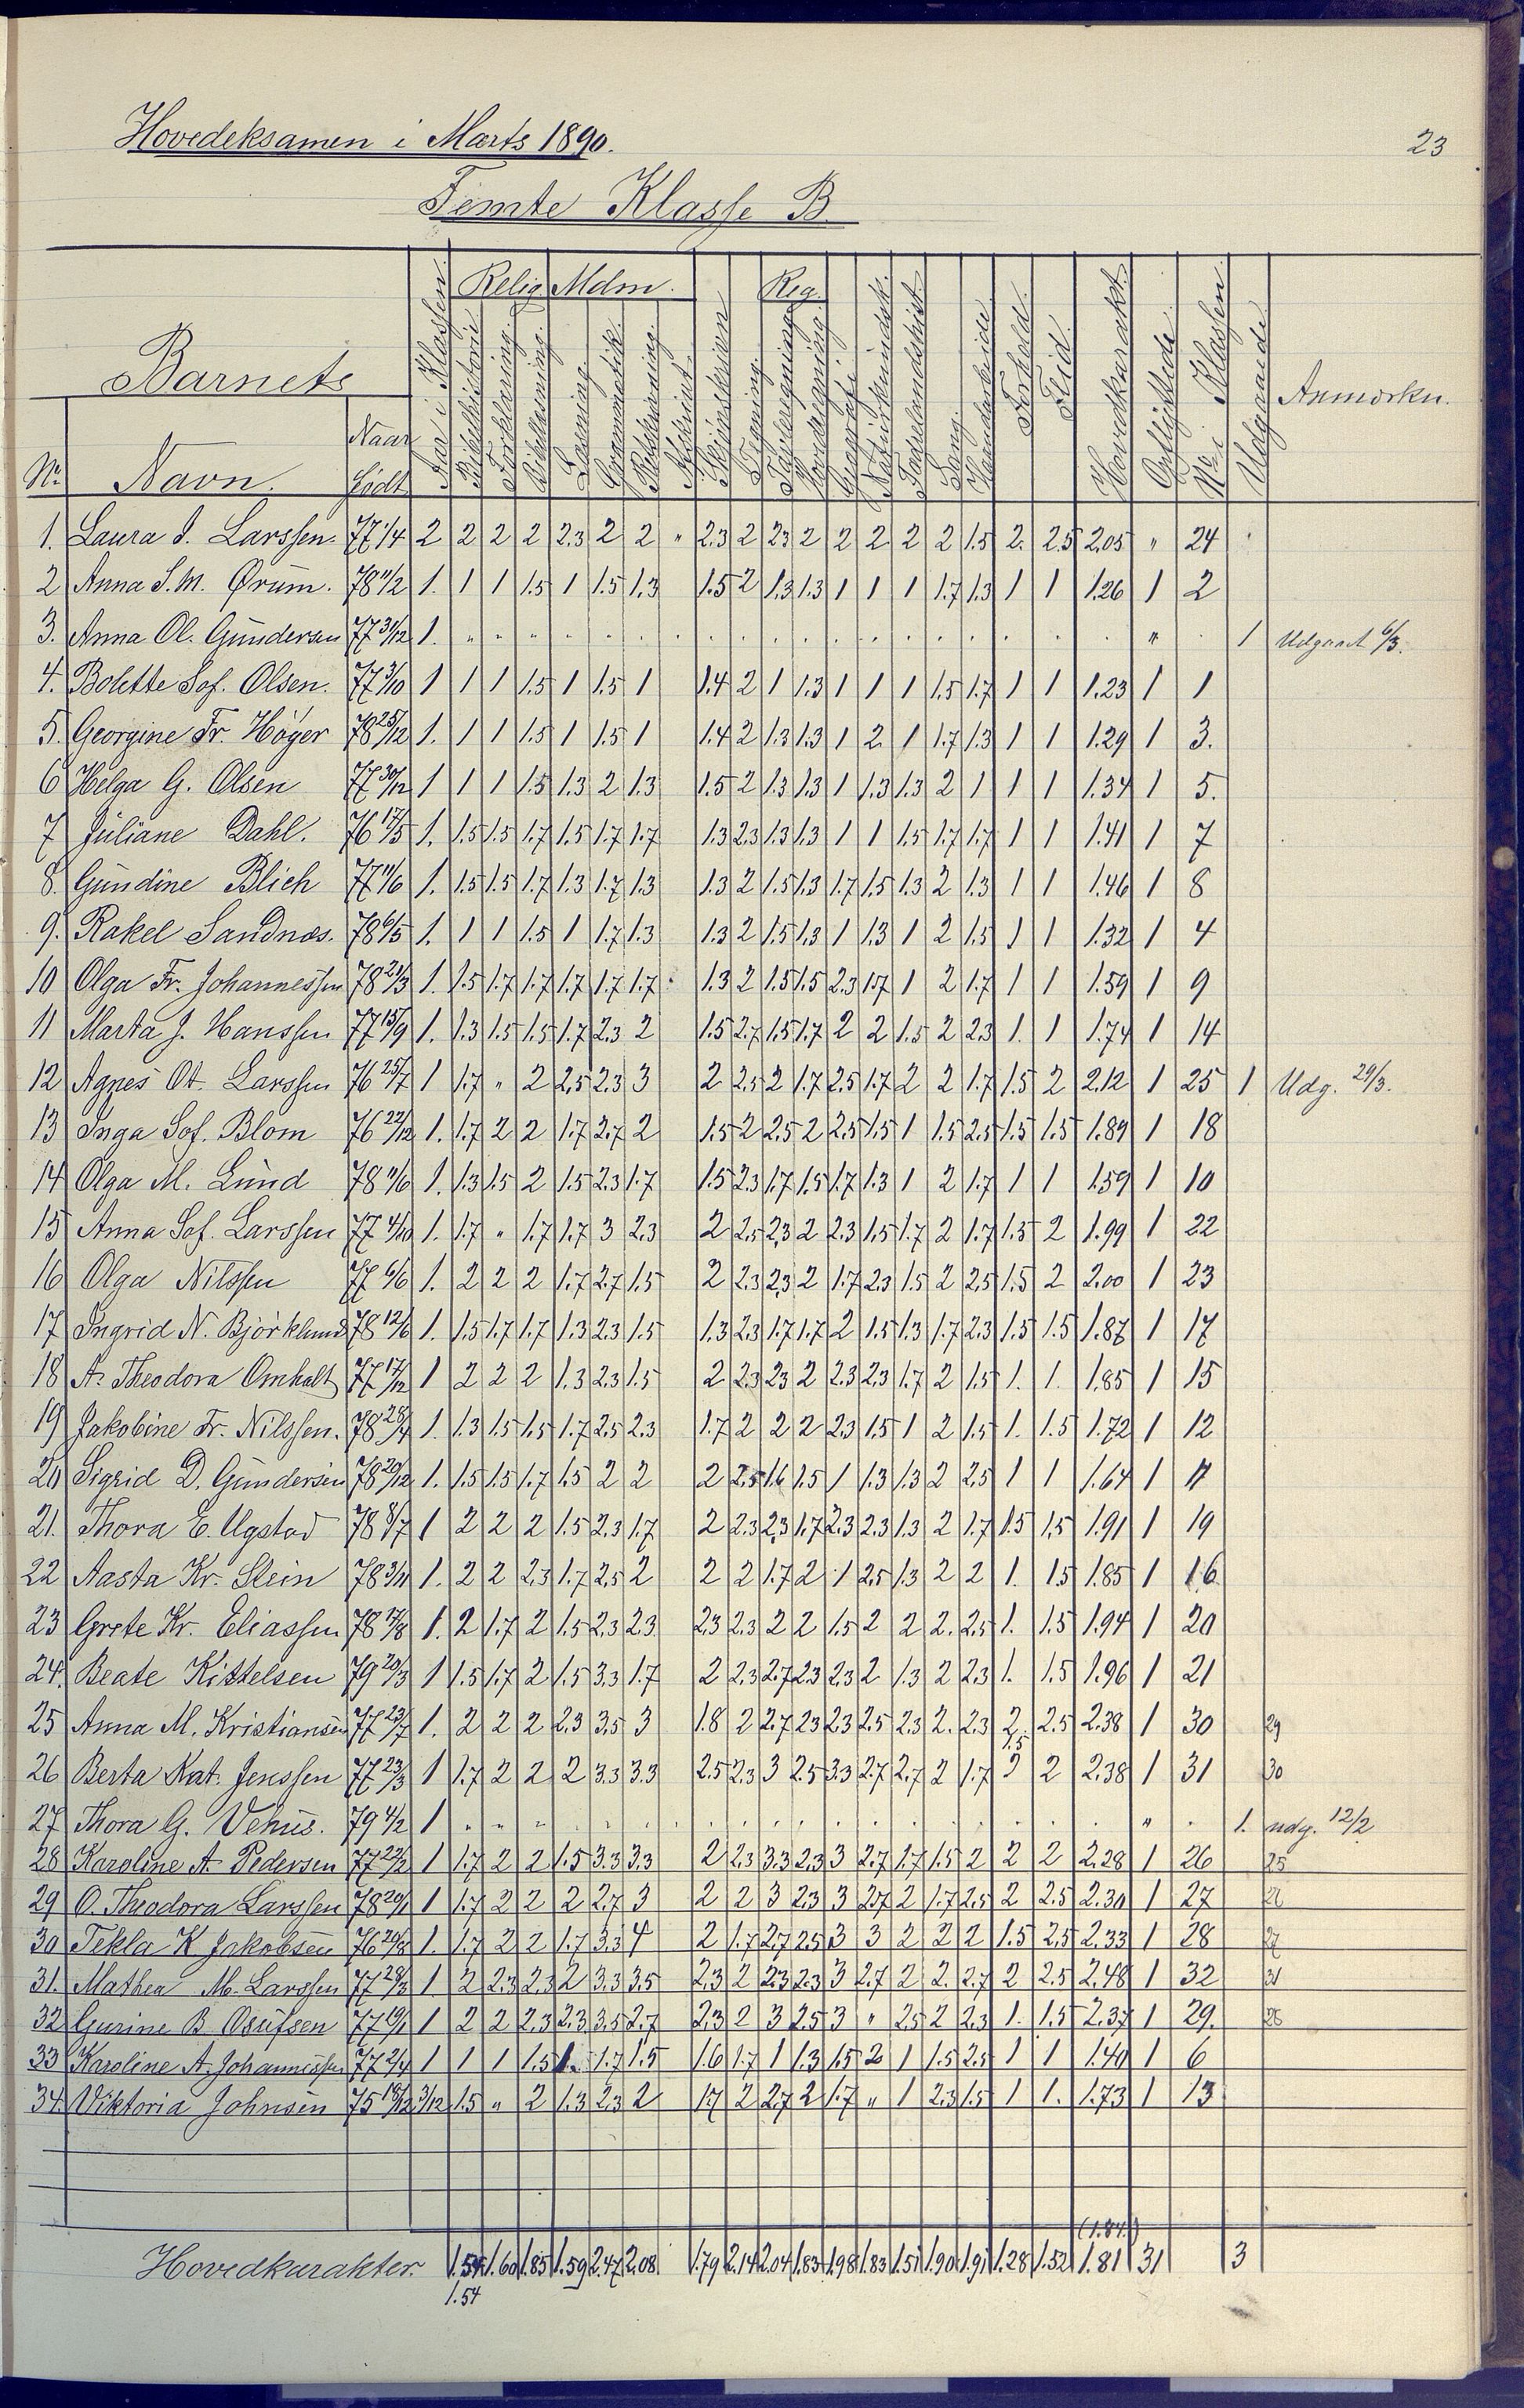 Hovedeksamen i Marts 1890.
23
Femte Klasse B.
Relig. Mdm. Reg.
Barnets
Nr. Navn. Naar født Aar i Klassen. Bibelhistorie Forklaring. Bibellæsning. Læsning. Grammatik. Retskrivning. Skjønskriven Tegning. Tavleregning Hovedregning. Geografi Naturkundsk. Fædrelandshist. Sang. Haandarbeide Forhold. Flid. Hovedkarakt. Opflyttede. Nr. i Klassen Udgaaede Anmærkn.
1. Laura J. Larssen. 77 1/4 2 2 2 2 2.3 2 2 " 2.3 2 2.3 2 2 2 2 2 1.5 2. 2.5 2.05 " 24
2 Anna S. M. Ørum. 78 11/2 1. 1 1 1.5 1 1.5 1.3 1.5 2 1.3 1.3 1 1 1 1.7 1.3 1 1 1.26 1 2
3. Anna Ol. Gundersen 77 31/12 1. " " " " 1 Udgaaet 6/3.
4. Bolette Sof. Olsen. 77 3/10 1 1 1 1.5 1 1.5 1 1.4 2 1 1.3 1 1 1 1.5 1.7 1 1 1.23 1 1
5. Georgine Fr. Höyer 78 25/12 1. 1 1 1.5 1 1.5 1 1.4 2 1.3 1.3 1 2. 1 1.7 1.3 1 1 1.29 1 3.
6 Helga G. Olsen 77 30/12 1 1 1 1.5 1.3 2 1.3 1.5 2 1.3 1.3 1 1.3 1.3 2 1 1 1 1.34 1 5.
7 Juliane Dahl. 76 17/5 1. 1.5 1.5 1.7 1.5 1.7 1.7 1.3 2.3 1.3 1.3 1 1 1.5 1.7 1.7 1 1 1.41 1 7
8. Gundine Blich 77 11/6 1. 1.5 1.5 1.7 1.3 1.7 1.3 1.3 2 1.5 1.3 1.7 1.5 1.3 2 1.3 1 1 1.46 1 8
9. Rakel Sandnæs. 78 6/5 1. 1 1 1.5 1 1.7 1.3 1.3 2 1.5 1.3 1 1.3 1 2 1.5 1 1 1.32 1 4
10 Olga Fr. Johannessen 78 21/3 1. 1.5 1.7 1.7 1.7 1.7 1.7 1.3 2 1.5 1.5 2.3 1.7 1 2 1.7 1 1 1.59 1 9
11 Marta J. Hanssen 77 15/9 1. 1.3 1.5 1.5 1.7 2.3 2 1.5 2.7 1.5 1.7 2 2 1.5 2 2.3 1. 1 1.74 1 14
12 Agnes Ot. Larssen 76 25/7 1 1.7 " 2 2.5 2.3 3 2 2.5 2 1.7 2.5 1.7 2 2 1.7 1.5 2 2.12 1 25 1 Udg. 29/3.
13 Inga Sof. Blom 76 22/12 1. 1.7 2 2 1.7 2.7 2 1.5 2 2.5 2 2.5 1.5 1 1.5 2.5 1.5 1.5 1.89 1 18
14 Olga M. Lund 78 11/6 1. 1.3 1.5 2 1.5 2.3 1.7 1.5 2.3 1.7 1.5 1.7 1.3 1 2 1.7 1 1 1.59 1 10
15 Anna Sof. Larssen 77 4/10 1. 1.7 " 1.7 1.7 3 2.3 2 2.5 2.3 2 2.3 1.5 1.7 2 1.7 1.5 2 1.99 1 22
16 Olga Nilssen 77 6/6 1. 2 2 2 1.7 2.7 1.5 2 2.3 2.3 2 1.7 2.3 1.5 2 2.5 1.5 2 2.00 1 23
17 Ingrid N. Björklund 78 12/6 1. 1.5 1.7 1.7 1.3 2.3 1.5 1.3 2.3 1.7 1.7 2 1.5 1.3 1.7 2.3 1.5 1.5 1.87 1 17
18 A. Theodora Omholt 77 17/12 1 2 2 2 1.3 2.3 1.5 2 2.3 2.3 2 2.3 2.3 1.7 2 1.5 1. 1. 1.85 1 15
19 Jakobine Fr. Nilssen. 78 28/4 1. 1.3 1.5 1.5 1.7 2.5 2.3 1.7 2 2 2 2.3 1.5 1 2 1.5 1. 1.5 1.72 1 12
20 Sigrid D. Gundersen 78 29/12 1. 1.5 1.5 1.7 1.5 2 2 2 2.5 1.6 1.5 1 1.3 1.3 2 2.5 1 1 1.64 1 11
21. Thora E. Ugstad 78 8/7 1 2 2 2 1.5 2.3 1.7 2 2.3 2.3 1.7 2.3 2.3 1.3 2 1.7 1.5 1.5 1.91 1 19
22 Aasta Kr. Stein 78 3/11 1. 2 2 2.3 1.7 2.5 2 2 2 1.7 2 1 2.5 1.3 2 2 1. 1.5 1.85 1 16
23 Grete Kr. Eliassen 78 17/8 1. 2 1.7 2 1.5 2.3 2.3 2.3 2.3 2 2 1.5 2 2 2. 2.5 1. 1.5 1.94 1 20
24. Beate Kittelsen 79 20/3 1 1.5 1.7 2 1.5 3.3 1.7 2 2.3 2.7 2.3 2.3 2 1.3 2 2.3 1. 1.5 1.96 1 21
25 Anna M. Kristiansen 77 23/7 1. 2 2 2 2.3 3.5 3 1.8 2 2.7 2.3 2.3 2.5 2.3 2. 2.3 2. 2.5 2.38 1 30 29
26 Berta Kat. Jenssen 77 23/3 1 1.7 2 2 2 3.3 3.3 2.5 2.3 3 2.5 3.3 2.7 2.7 2 1.7 1.5 2 2 2.38 1 31 30
27 Thora G. Vehus. 79 4/2 1 " " " " 1. udg. 12/2
28 Karoline A. Pedersen 77 22/2 1 1.7 2 2 1.5 3.3 3.3 2 2.3 3.3 2.3 3 2.7 1.7 1.5 2 2 2 2.28 1 26 25
29 O. Theodora Larssen 78 20/1 1 1.7 2 2 2 2.7 3 2 2 3 2.3 3 2.7 2 1.7 2.5 2 2.5 2.30 1 27 26
30 Tekla K Jakobsen 76 20/8 1. 1.7 2 2 1.7 3.3 4 2 1.7 2.7 2.5 3 3 2 2 2 1.5 2.5 2.33 1 28 27
31. Mathea M. Larssen 77 28/3 1 2 2.3 2.3 2 3.3 3.5 2.3 2 2.3 2.3 3 2.7 2 2. 2.7 2 2.5 2.48 1 32 31
32 Gurine B Osufsen 77 19/1 1 2 2 2.3 2.3 3.5 2.7 2.3 2 3 2.5 3 " 2.5 2 2.3 1. 1.5 2.37 1 29. 28
33 Karoline A. Johannessen 77 2/4 1 1 1 1.5 1. 1.7 1.5 1.6 1.7 1 1.3 1.5 2 1 1.5 2.5 1 1 1.40 1 6
34. Viktoria Johnsen 75 18/12 3/12 1.5 " 2 1.3 2.3 2 1.7 2 2.7 2 1.7 " 1 2.3 1.5 1 1. 1.73 1 13
(1.84)
Hovedkarakter. 1.54 1.60 1.85 1.59 2.47 2.08 1.79 2.14 2.04 1.83 1.98 1.83 1.51 1.90 1.91 1.28 1.52 1.81 31 3
1.54